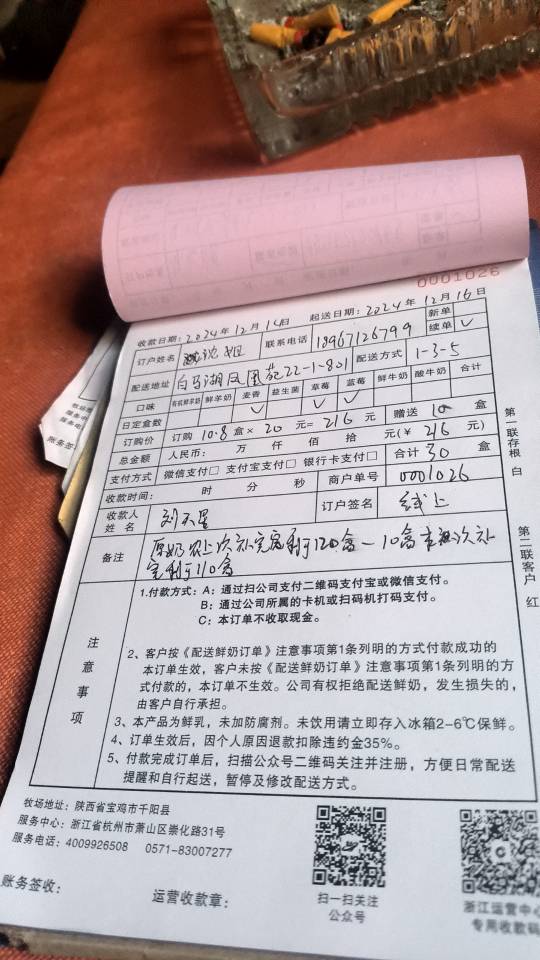 0001026
收款日期：2024年12月14日 起送日期：2024年12月16日
订户姓名 沈姐 联系电话 18967126799 新单 续单 ✓
配送地址 白马湖凤凰苑22-1-801 配送方式 1-3-5
口味 有机鲜羊奶 鲜羊奶 麦香 益生菌 草莓 蓝莓 鲜牛奶 酸牛奶 合计
日定盒数 ✓ ✓ ✓
订购价 订购 10.8 盒× 20 元= 216 元 赠送 10 盒
总金额 人民币： 万 仟 佰 拾 元(￥ 216 元)
支付方式 微信支付□ 支付宝支付□ 银行卡支付□ 合计 30 盒
收款时间： 时 分 秒 商户单号 0001026
收款人姓名 订户签名 线上
备注
宝利于110盒
1.付款方式：A：通过扫公司支付二维码支付宝或微信支付。
B：通过公司所属的卡机或扫码机打码支付。
C：本订单不收取现金。
注意事项
2、客户按《配送鲜奶订单》注意事项第1条列明的方式付款成功的
本订单生效，客户未按《配送鲜奶订单》注意事项第1条列明的方
式付款的，本订单不生效。公司有权拒绝配送鲜奶，发生损失的，
由客户自行承担。
3、本产品为鲜乳，未加防腐剂。未饮用请立即存入冰箱2-6℃保鲜。
4、订单生效后，因个人原因退款扣除违约金35%。
5、付款完成订单后，扫描公众号二维码关注并注册，方便日常配送
提醒和自行起送，暂停及修改配送方式。
第一联存根 白 第二联客户 红
牧场地址：陕西省宝鸡市千阳县
服务中心：浙江省杭州市萧山区崇化路31号
服务电话：4009926508 0571-83007277
账务签收： 运营收款章：
扫一扫关注
公众号
浙江运营中心
专用收款码